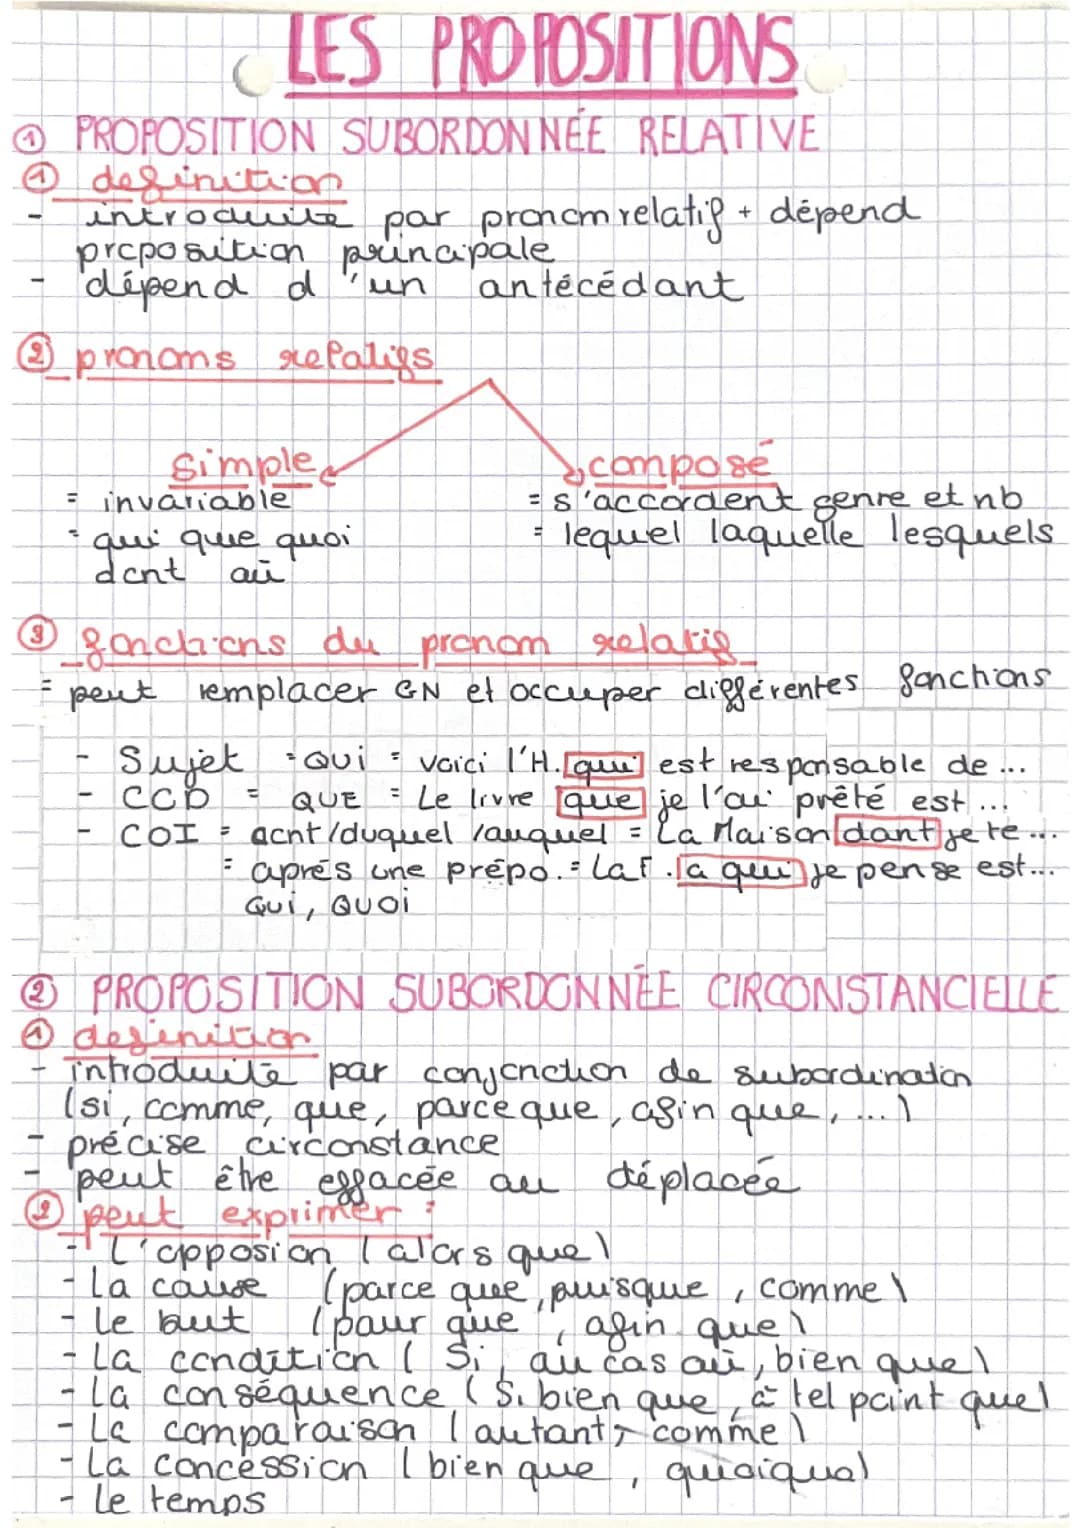 LES PROPOSITIONS
① PROPOSITION SUBORDONNÉE RELATIVE
① definition
- introduite par pronom relatif + dépend
proposition principale
- dépend d'un antécédant
② pronoms relatifs
simple composé
= invariable = s'accordent genre et nb
= qui que quoi = lequel laquelle lesquels
dont où
③ fonctions du pronom relatif
= peut remplacer GN et occuper différentes fonctions
- Sujet = QUI = voici l'H. qui est responsable de ...
- COD = QUE = Le livre que je l'ai prêté est ...
- COI = dont/duquel/auquel = La Maison dont je te ...
= aprés une prépo. = La F. a qui je pense est...
QUI, QUOI
② PROPOSITION SUBORDONNÉE CIRCONSTANCIELLE
① definition
- introduite par conjonction de subordination
(si, comme, que, parce que, afin que, ...)
- précise circonstance
- peut être effacée ou déplacée
② peut exprimer :
- L'opposion (alors que)
- La cause (parce que, puisque, comme)
- Le but (pour que, afin que)
- La condition (Si, au cas où, bien que)
- La conséquence (Si bien que, à tel point que)
- La comparaison (autant, comme)
- La concession (bien que, quoique)
- Le temps